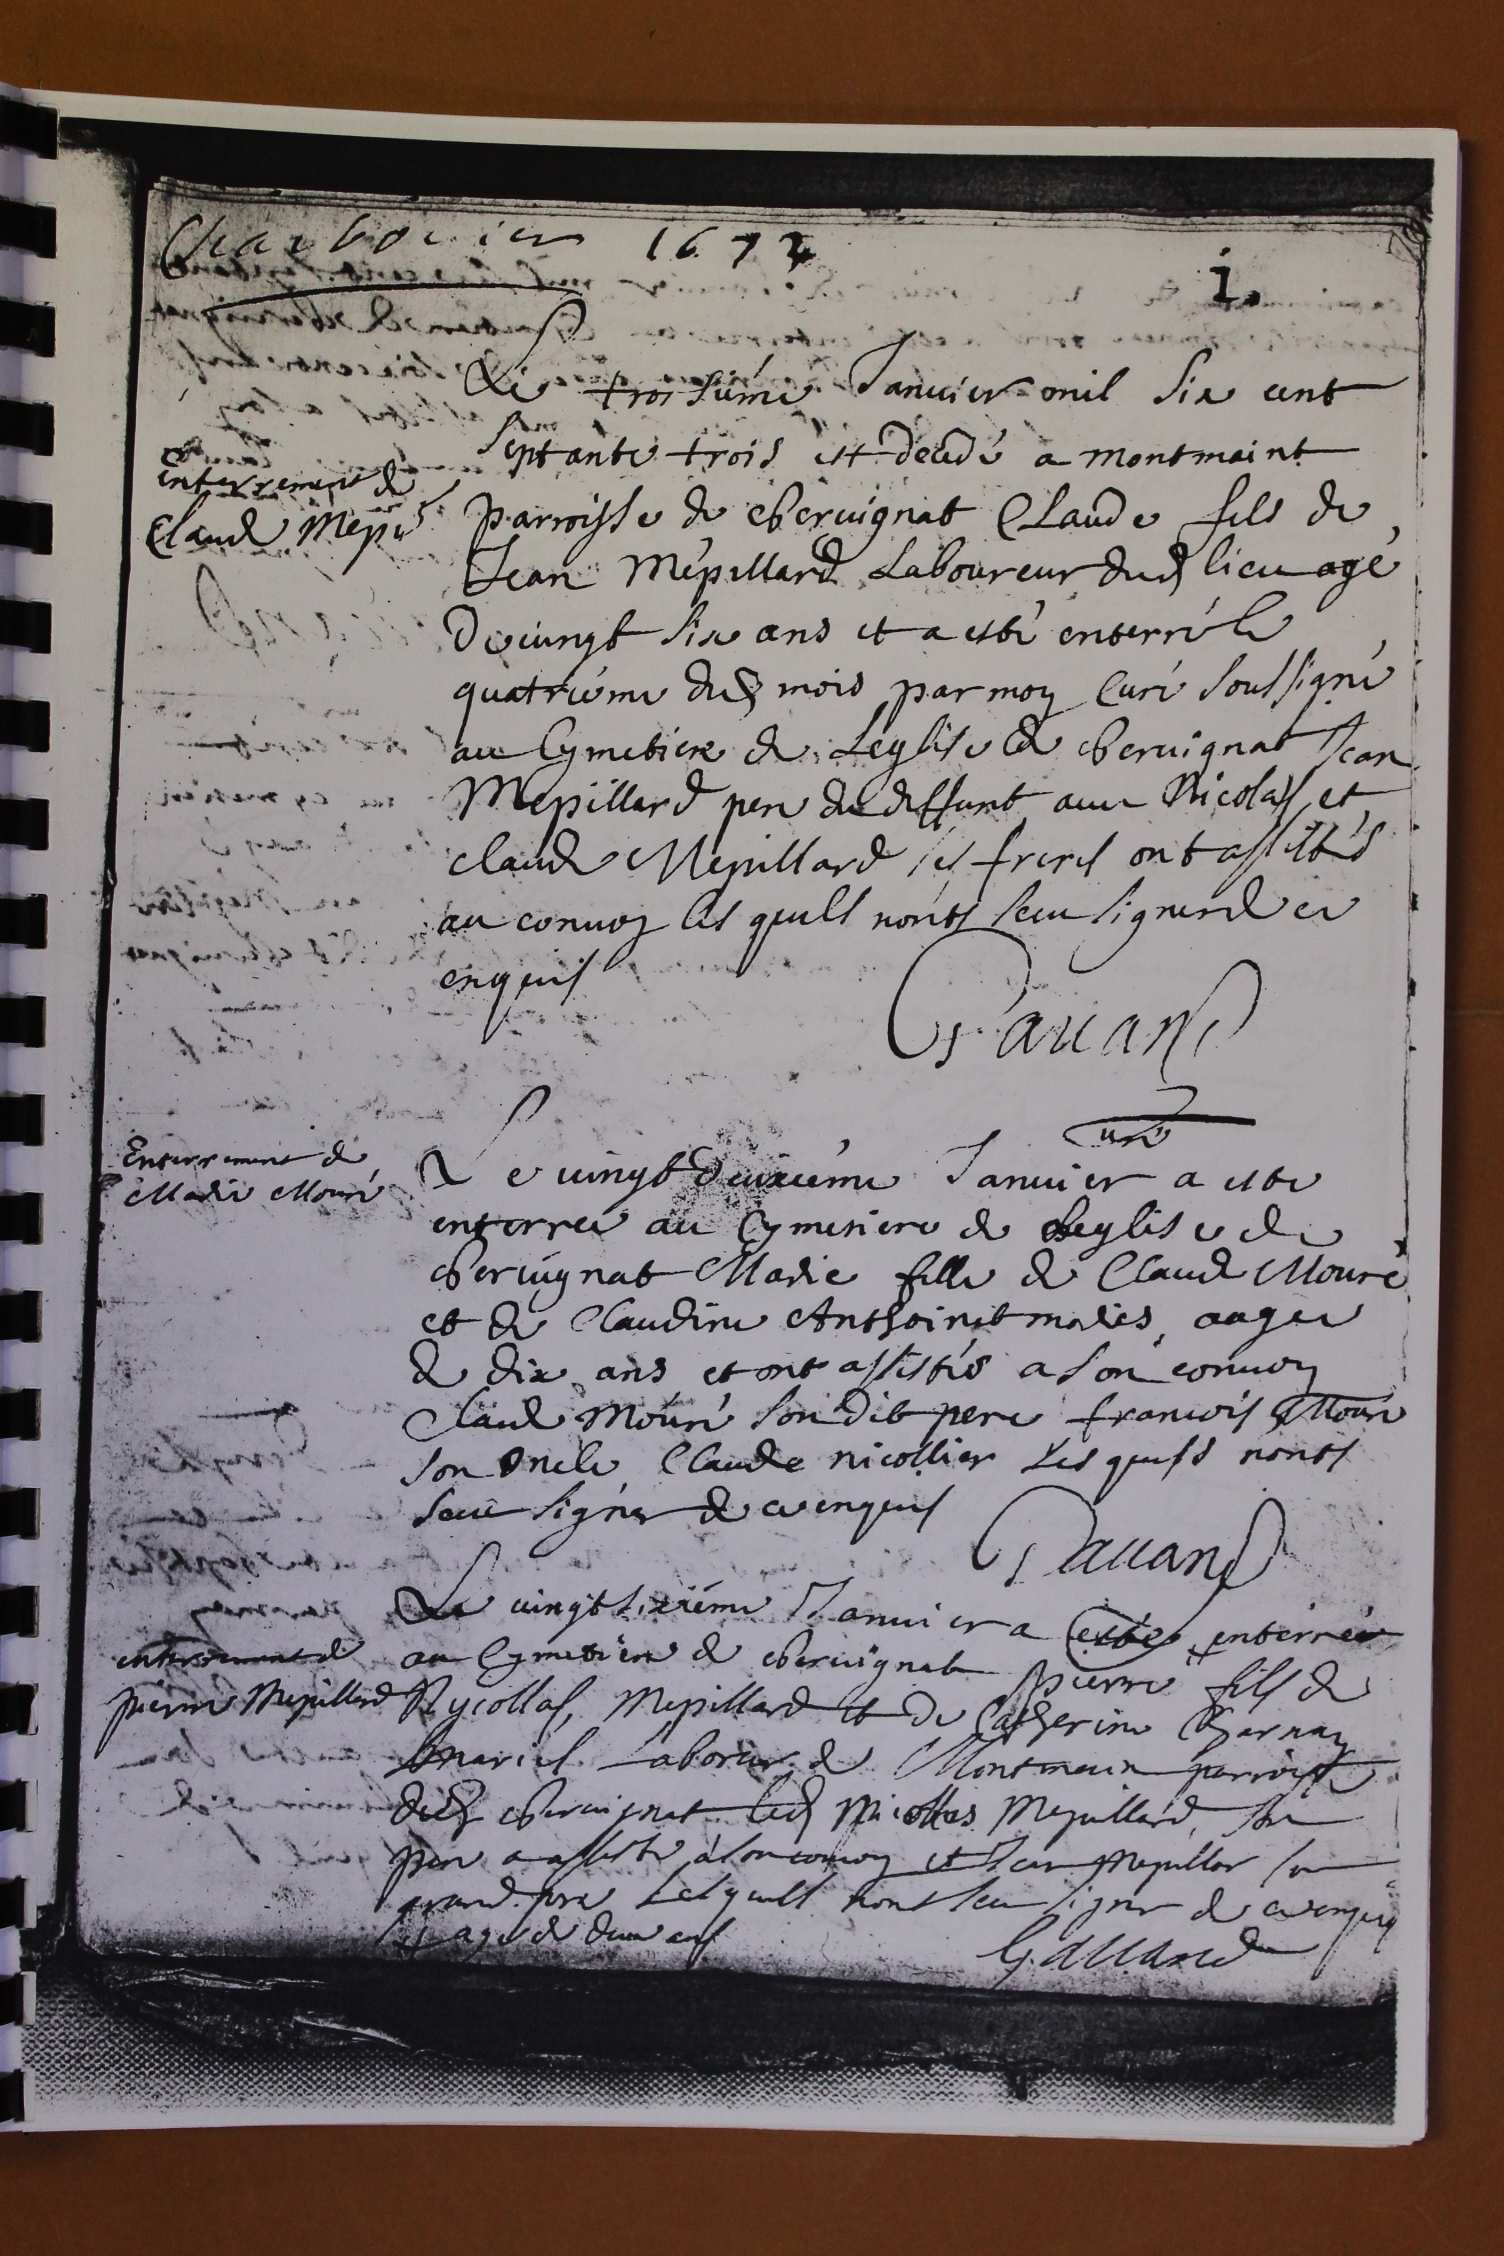 1673
1.
Le troisiéme Januier mil six cent
septante trois est decedé a montmaint
enterrement de
Claude Mepi
parroisse de cheruignat Claude fils de
Jean Mepillard Laboureur dud lieu agé
de uingt six ans et a esté enterré le
quatriéme dud mois par moy Curé soussigné
au Cymetiere de Leglise de cheruignat Jean
Mepillard pere du deffunt auec Nicolas et
claude Mepillard ses freres ont assistés
au conuoy les quels nonts sceu signer de ce
enquis
Pauand
Curé
Enterrement de
Marie Mouré
Le uingt deuxiéme Januier a este
enterreé au Cymetiere de Leglise de
cheruignat Marie fille de Claude Mouré
et de Claudine Anthoinet mariés aagee
de dix ans et ont assistés a son conuoy
Claude Mouré son dit pere francois Mouré
son oncle Claude nicollier Les quels nonts
sceu signer de ce enquis
Pauand
Le uingt sixiéme Januier a esté enterrée
enterrement de
pierre Mepillard
au Cymetiere de cheruignat pierre fils de
Nycollas Mepillard et de Catherine Charnay
mariés Laboreur de Montmain parroisse
dud cheruignat led Nicollas Mepillard son
pere a assisté a son conuoy et Jean Mepillar son
grand pere Lesquels nont sceu signer de ce enquis
agé de deux ans
Pauand